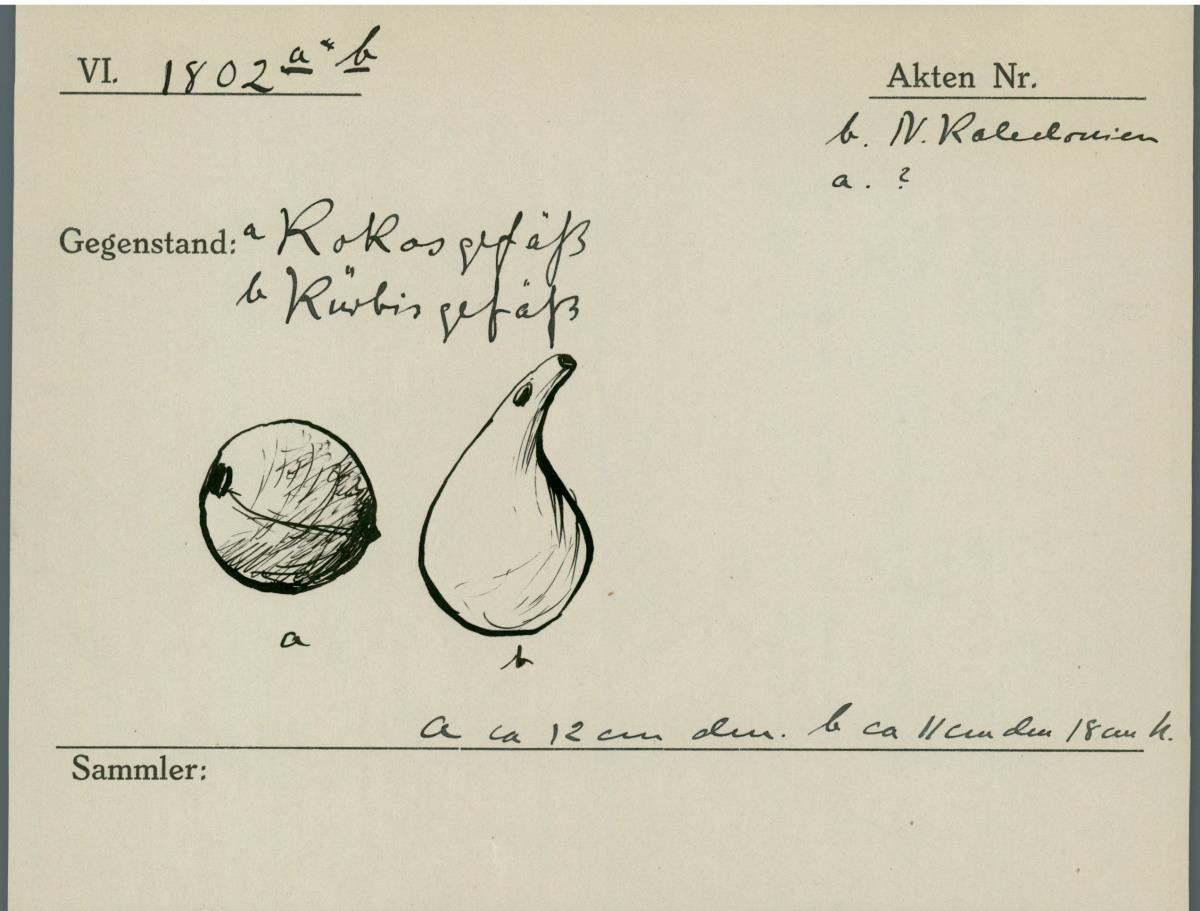 VI. 1802 a + b
Akten Nr.
b. N. Kaledonien
a. ?
Gegenstand: a Kokosgefäß
b Kürbisgefäß
a
b
a ca 12 cm dm. b ca 11 cm dm 18 cm h.
Sammler: